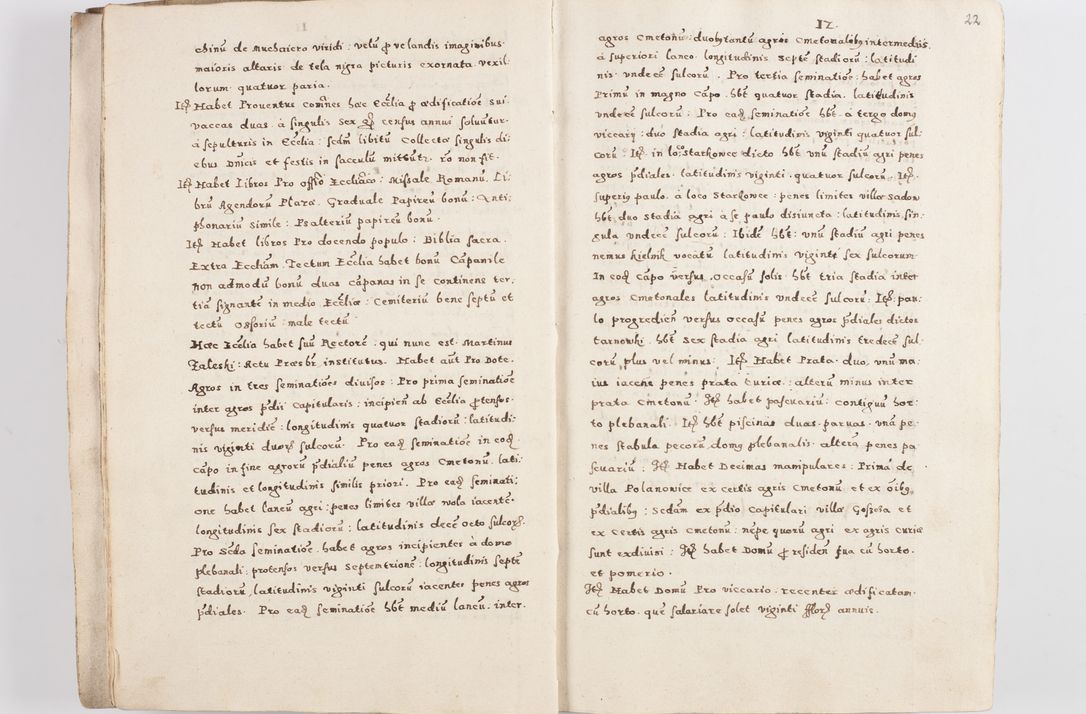 chinũ de Muchaiero viridi : velũ ꝓ velandis imaginibus
maioris altaris de tela nigra picturis exornata. vexil:
lorum quatuor paria.
Itē Habet Prouentus com̃nes hæc Ecc̃lia ꝓ ædificatiõe sui.
vaccas duas. à singulis sex census annui soluuntur.
à sepulturis in Ecc̃lia : secũdm libitũ Collecta singulis di:
ebus Dñicis et festis in sacculũ mittitr. ro non fit.
Itē Habet Libros Pro offio Ecc̃liaco : Missale Romanũ. Li:
brũ Agendorũ Plara. Graduale Papireũ bonũ : Anti:
phonariũ simile : Psalteriũ papireũ bonũ.
Itē Habet libros Pro docendo populo : Biblia sacra.
Extra Ecc̃liam. Tectum Ecc̃lia habet bonũ Cãpanile
non admodũ bonũ duas cãpanas in se continens ter:
tiã signantẽ in medio Ecc̃liæ : Cemiteriũ bene septũ et
tectũ Ossoriũ male tectũ
Hæc Ecc̃lia habet suũ Rectorẽ : qui nunc est Martinus
Zaleski : Actu Præsbr̃ institutus. Habet aũt Pro Dote.
Agros in tres seminatiões diuisos : Pro prima seminatiõe
inter agros p̃dii Capitularis : incipien̄ ab Ecc̃lia ꝓtensos
versus meridiẽ : longitudinis quatuor stadiorũ : latitudi:
nis viginti duorũ sulcorũ. Pro eadẽ seminatiõe in eodẽ
cãpo in fine agrorũ p̃dialiũ penes agros Cmetonũ. lati:
tudinis et longitudinis similis priori. Pro eadẽ seminati:
one habet laneũ agri : penes limites villæ wola iacentẽ.
longitudinis sex stadiorũ : latitudinis decẽ octo sulcorũ.
Pro Secũda seminatiõe. habet agros incipientes à domo
plebanali : protensos versus Septemtrionẽ : longitudinis septẽ
stadiorũ, latitudinis viginti sulcorũ iacentes penes agros
p̃diales. Pro eadẽ seminatiõe hb̃t mediũ laneũ. inter.
22
12.
agros Cmetonũ : duobꝰ tantũ agris Cmetonalibꝰ intermediis.
à superiori laneo. longitudinis septẽ stadiorũ : latitudi
nis vndecẽ sulcorũ. Pro tertia seminatiõe : habet agros
Primũ in magno Cãpo. hb̃t quatuor stadia. latitudinis
vndecẽ sulcorũ : Pro eadẽ seminatiõe hb̃t. à tergo domꝰ
viccarÿ : duo stadia agri : latitudinis viginti quatuor sul:
corũ : Itē in loco Starkowce dicto hb̃t vnũ stadiũ agri penes
agros p̃diales. latitudinis viginti quatuor sulcorũ. Itē
superiꝰ paulo. à loco Starkowce : penes limites villæ Sadow
hb̃t duo stadia agri à se paulo disiuncta : latitudinis sin:
gula vndecẽ sulcorũ : Ibidẽ hb̃t : vnũ stadiũ agri penes
nemus kielnik vocatũ latitudinis viginti sex sulcorum.
In eodẽ Cãpo versus Occasũ solis. hb̃t tria stadia inter
agros Cmetonales latitudinis vndecẽ sulcorũ : Itē pau:
lo progredien̄ versus Occasũ penes agros p̃diales dictos
tarnowki. hb̃t sex stadia agri latitudinis tredecẽ sul
corũ plus vel minus. Itē Habet Prata duo. vnũ ma:
ius iacens penes prata Curiæ : alterũ minus inter
prata Cmetonũ. Itē habet pascuariũ : contiguũ hor:
to plebanali. Itē hb̃t piscinas duas paruas. vnã pe:
nes stabula pecorũ domꝰ plebanalis. alterã penes pa
scuariũ : Itē Habet Decimas manipulares : Primã de.
villa Polanowice ex certis agris Cmetonũ et ex oĩbꝰ
p̃dialibꝰ : Secũdam ex p̃dio Capitulari villæ Goszcza et
ex certis agris Cmetonũ : nẽpe quorũ agri ex agris Curiæ
sunt exdiuisi : Itē habet Domũ ꝓ residen̄ sua cũ horto.
et pomerio.
Itē Habet Domũ Pro viccario. recenter ædificatam.
cũ horto. quẽ salariare solet viginti fflorẽ annuis.